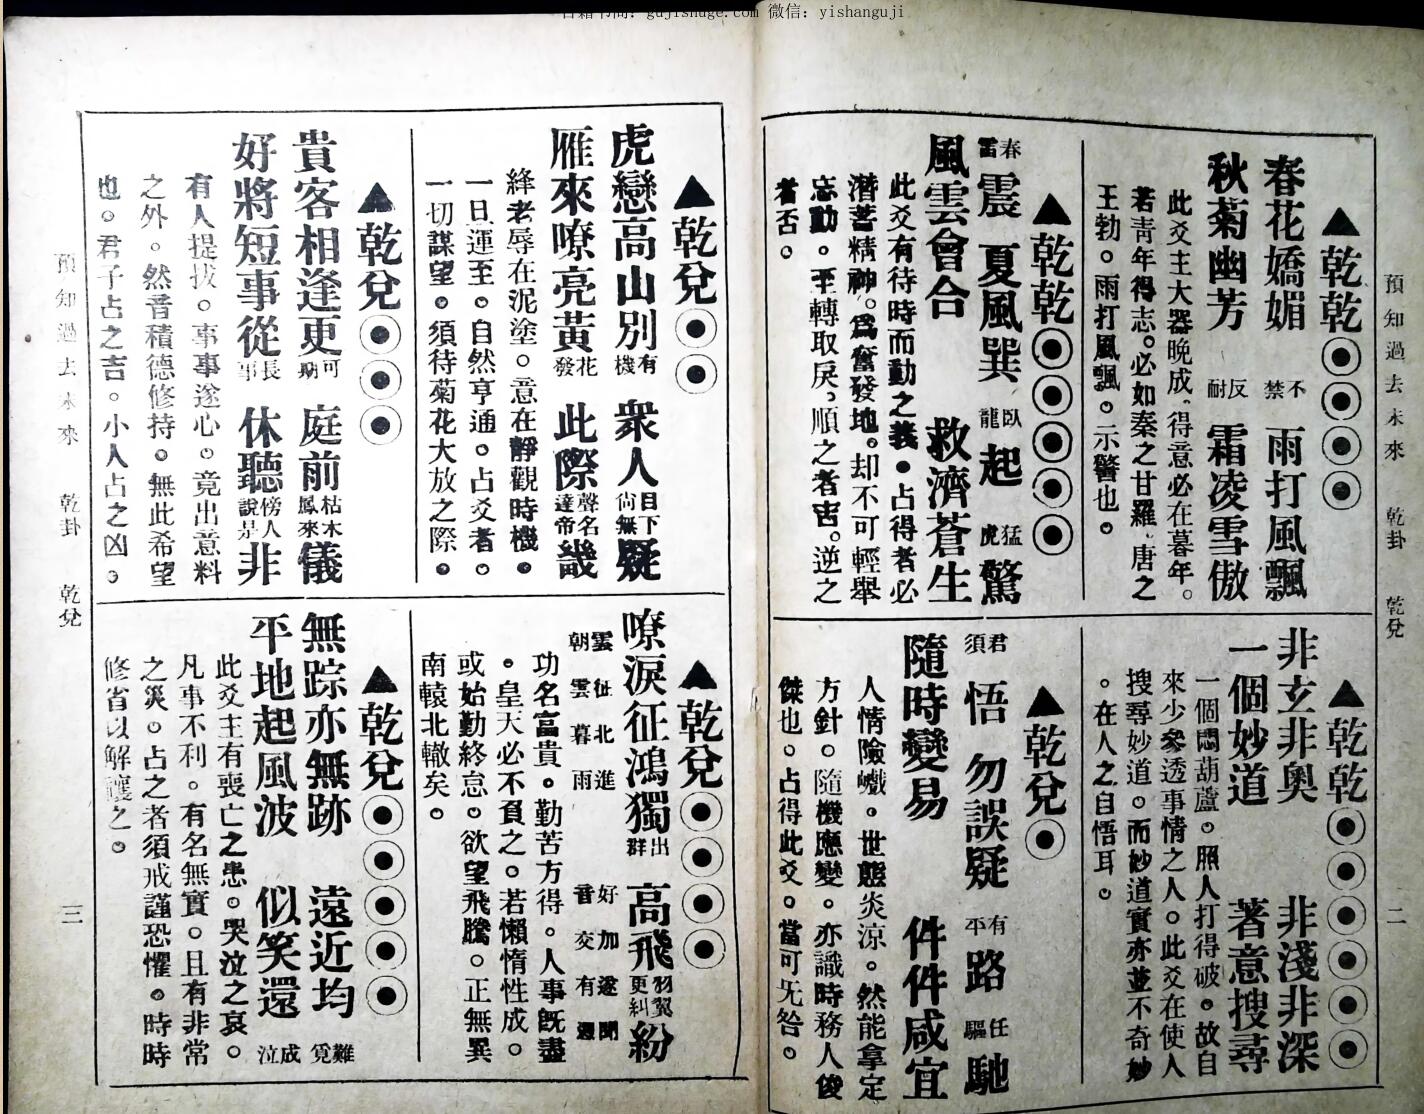 古籍书阁：gujishuge.com 微信：yishanguji
預知過去未來 乾卦 乾兌 二
▲乾乾◉◉◉◉
春花嬌媚 不禁 雨打風飄
秋菊幽芳 反耐 霜凌雪傲
此爻主大器晚成、得意必在暮年。
若青年得志。必如秦之甘羅、唐之
王勃。雨打風飄。示警也。
▲乾乾◉◉◉◉◉
春雷震 夏風巽 臥龍起 猛虎驚
風雲會合 救濟蒼生
此爻有待時而動之義。占得者必
潛蓄精神。爲奮發地。却不可輕舉
忘動。至轉取戾。順之者吉。逆之
者否。
▲乾乾◉◉◉◉◉◉
非玄非奧 非淺非深
一個妙道 著意搜尋
一個悶葫蘆。照人打得破。故自
來少參透事情之人。此爻在使人
搜尋妙道。而妙道實亦並不奇妙
。在人之自悟耳。
▲乾兌◉
君須悟 勿誤疑 有平路 任驅馳
隨時變易 件件咸宜
人情險巇。世態炎涼。然能拿定
方針。隨機應變。亦識時務人俊
傑也。占得此爻。當可无咎。
▲乾兌◉◉
虎戀高山別有機 衆人目下尙無疑
雁來嘹亮黃花發 此際聲名達帝畿
絳老辱在泥塗。意在靜觀時機。
一旦運至。自然亨通。占爻者。
一切謀望。須待菊花大放之際。
▲乾兌◉◉◉
貴客相逢更可期 庭前枯木鳳來儀
好將短事從長事 休聽傍人說是非
有人提拔。事事遂心。竟出意料
之外。然昔積德修持。無此希望
也。君子占之吉。小人占之凶。
▲乾兌◉◉◉◉
嘹淚征鴻獨出群 高飛羽翼更糾紛
雲征北進 好加遂聞
朝雲暮雨 音交有遇
功名富貴。勤苦方得。人事既盡
。皇天必不負之。若懶惰性成。
或始勤終怠。欲望飛騰。正無異
南轅北轍矣。
▲乾兌◉◉◉◉◉
無踪亦無跡 遠近均難覓
平地起風波 似笑還成泣
此爻主有喪亡之患。哭泣之哀。
凡事不利。有名無實。且有非常
之災。占之者須戒謹恐懼。時時
修省以解釀之。
預知過去未來 乾卦 乾兌 三